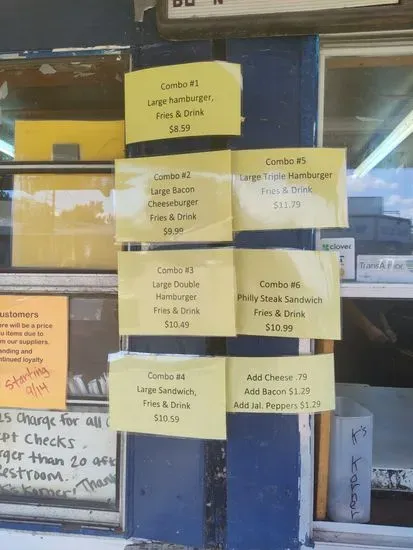 Combo #1
Large hamburger,
Fries & Drink
$8.59
Combo #2
Large Bacon
Cheeseburger
Fries & Drink
$9.99
Combo #5
Large Triple Hamburger
Fries & Drink
$11.79
Combo #3
Large Double
Hamburger
Fries & Drink
$10.49
Combo #6
Philly Steak Sandwich
Fries & Drink
$10.99
Combo #4
Large Sandwich,
Fries & Drink
$10.59
Add Cheese .79
Add Bacon $1.29
Add Jal. Peppers $1.29
clover
ustomers
ere will be a price
u items due to
m our suppliers.
anding and
ntinued loyalty
Starting
9/14
25 Charge for all
ept Checks
rger than 20 aft
estroom.
Korner! Than
K's Korner